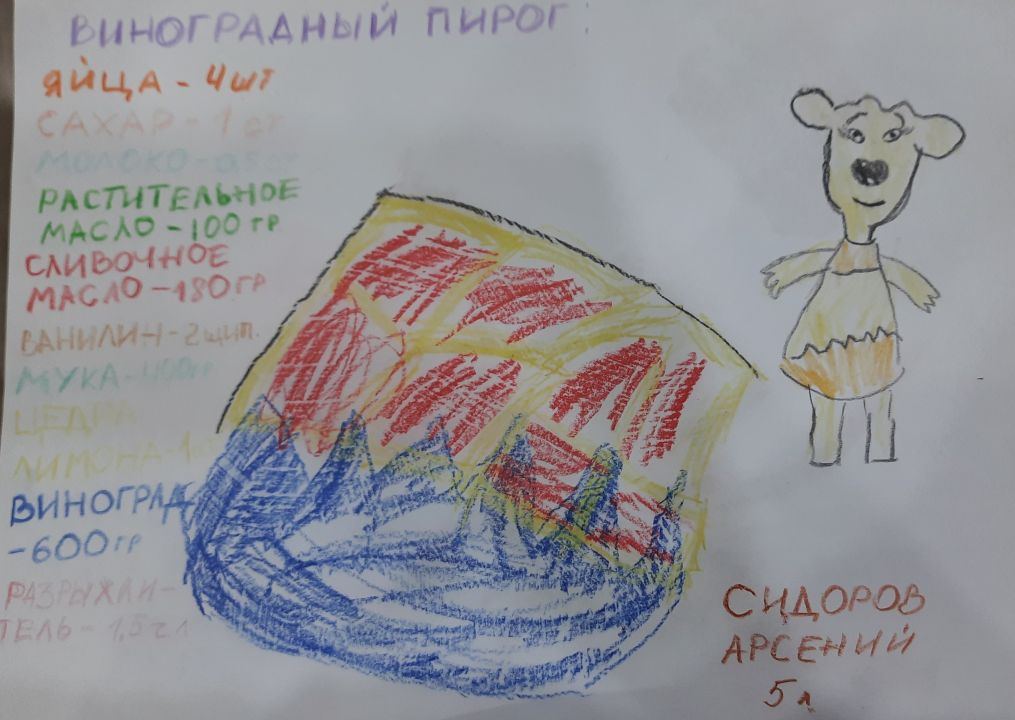 ВИНОГРАДНЫЙ ПИРОГ:
ЯЙЦА - 4 ШТ
САХАР - 1 СТ
МОЛОКО - 0,5 СТ
РАСТИТЕЛЬНОЕ
МАСЛО - 100 ГР
СЛИВОЧНОЕ
МАСЛО - 180 ГР
ВАНИЛИН - 2 ЩИП.
МУКА - 400 ГР
ЦЕДРА
ЛИМОНА - 1
ВИНОГРАД
- 600 ГР
РАЗРЫХЛИ-
ТЕЛЬ - 1,5 Ч Л
СИДОРОВ
АРСЕНИЙ
5 Л